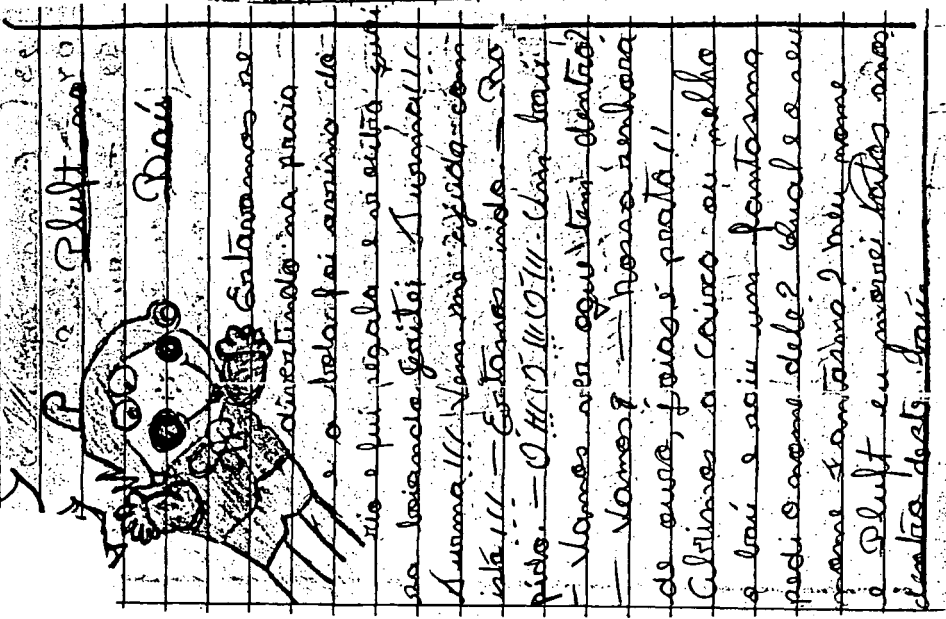 Pluft no
Baú
Estávamos se
divertindo na praia
e a bola foi
rio e fui pegala e vi
ao boiando gritei Turma!!!
Turma!!! Vem me ajuda com
isto!!! — Estamos indo — Ra
pido. — OHHO!!!!OT!!! Um baú!
— Vamos ver oque tem dentro?
— Vamos? — Nossa senhora
de ouro, joias e prata!
Abrimos a caixa ou melho
o baú e saiu um fantasma
pedi o nome dele? Qual e o seu
nome fantasma? Meu nome
e Pluft eu morei tantos anos
dentro deste baú.